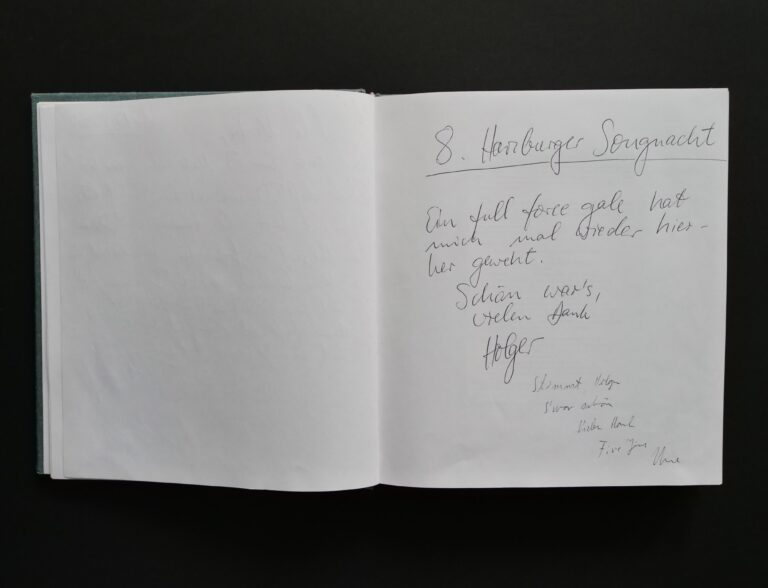 8. Harburger Songnacht
Ein full force gale hat
mich mal wieder hier-
her geweht.
Schön war's,
vielen Dank
Holger
Stimmt, Holger
S'war schön
Vielen Dank